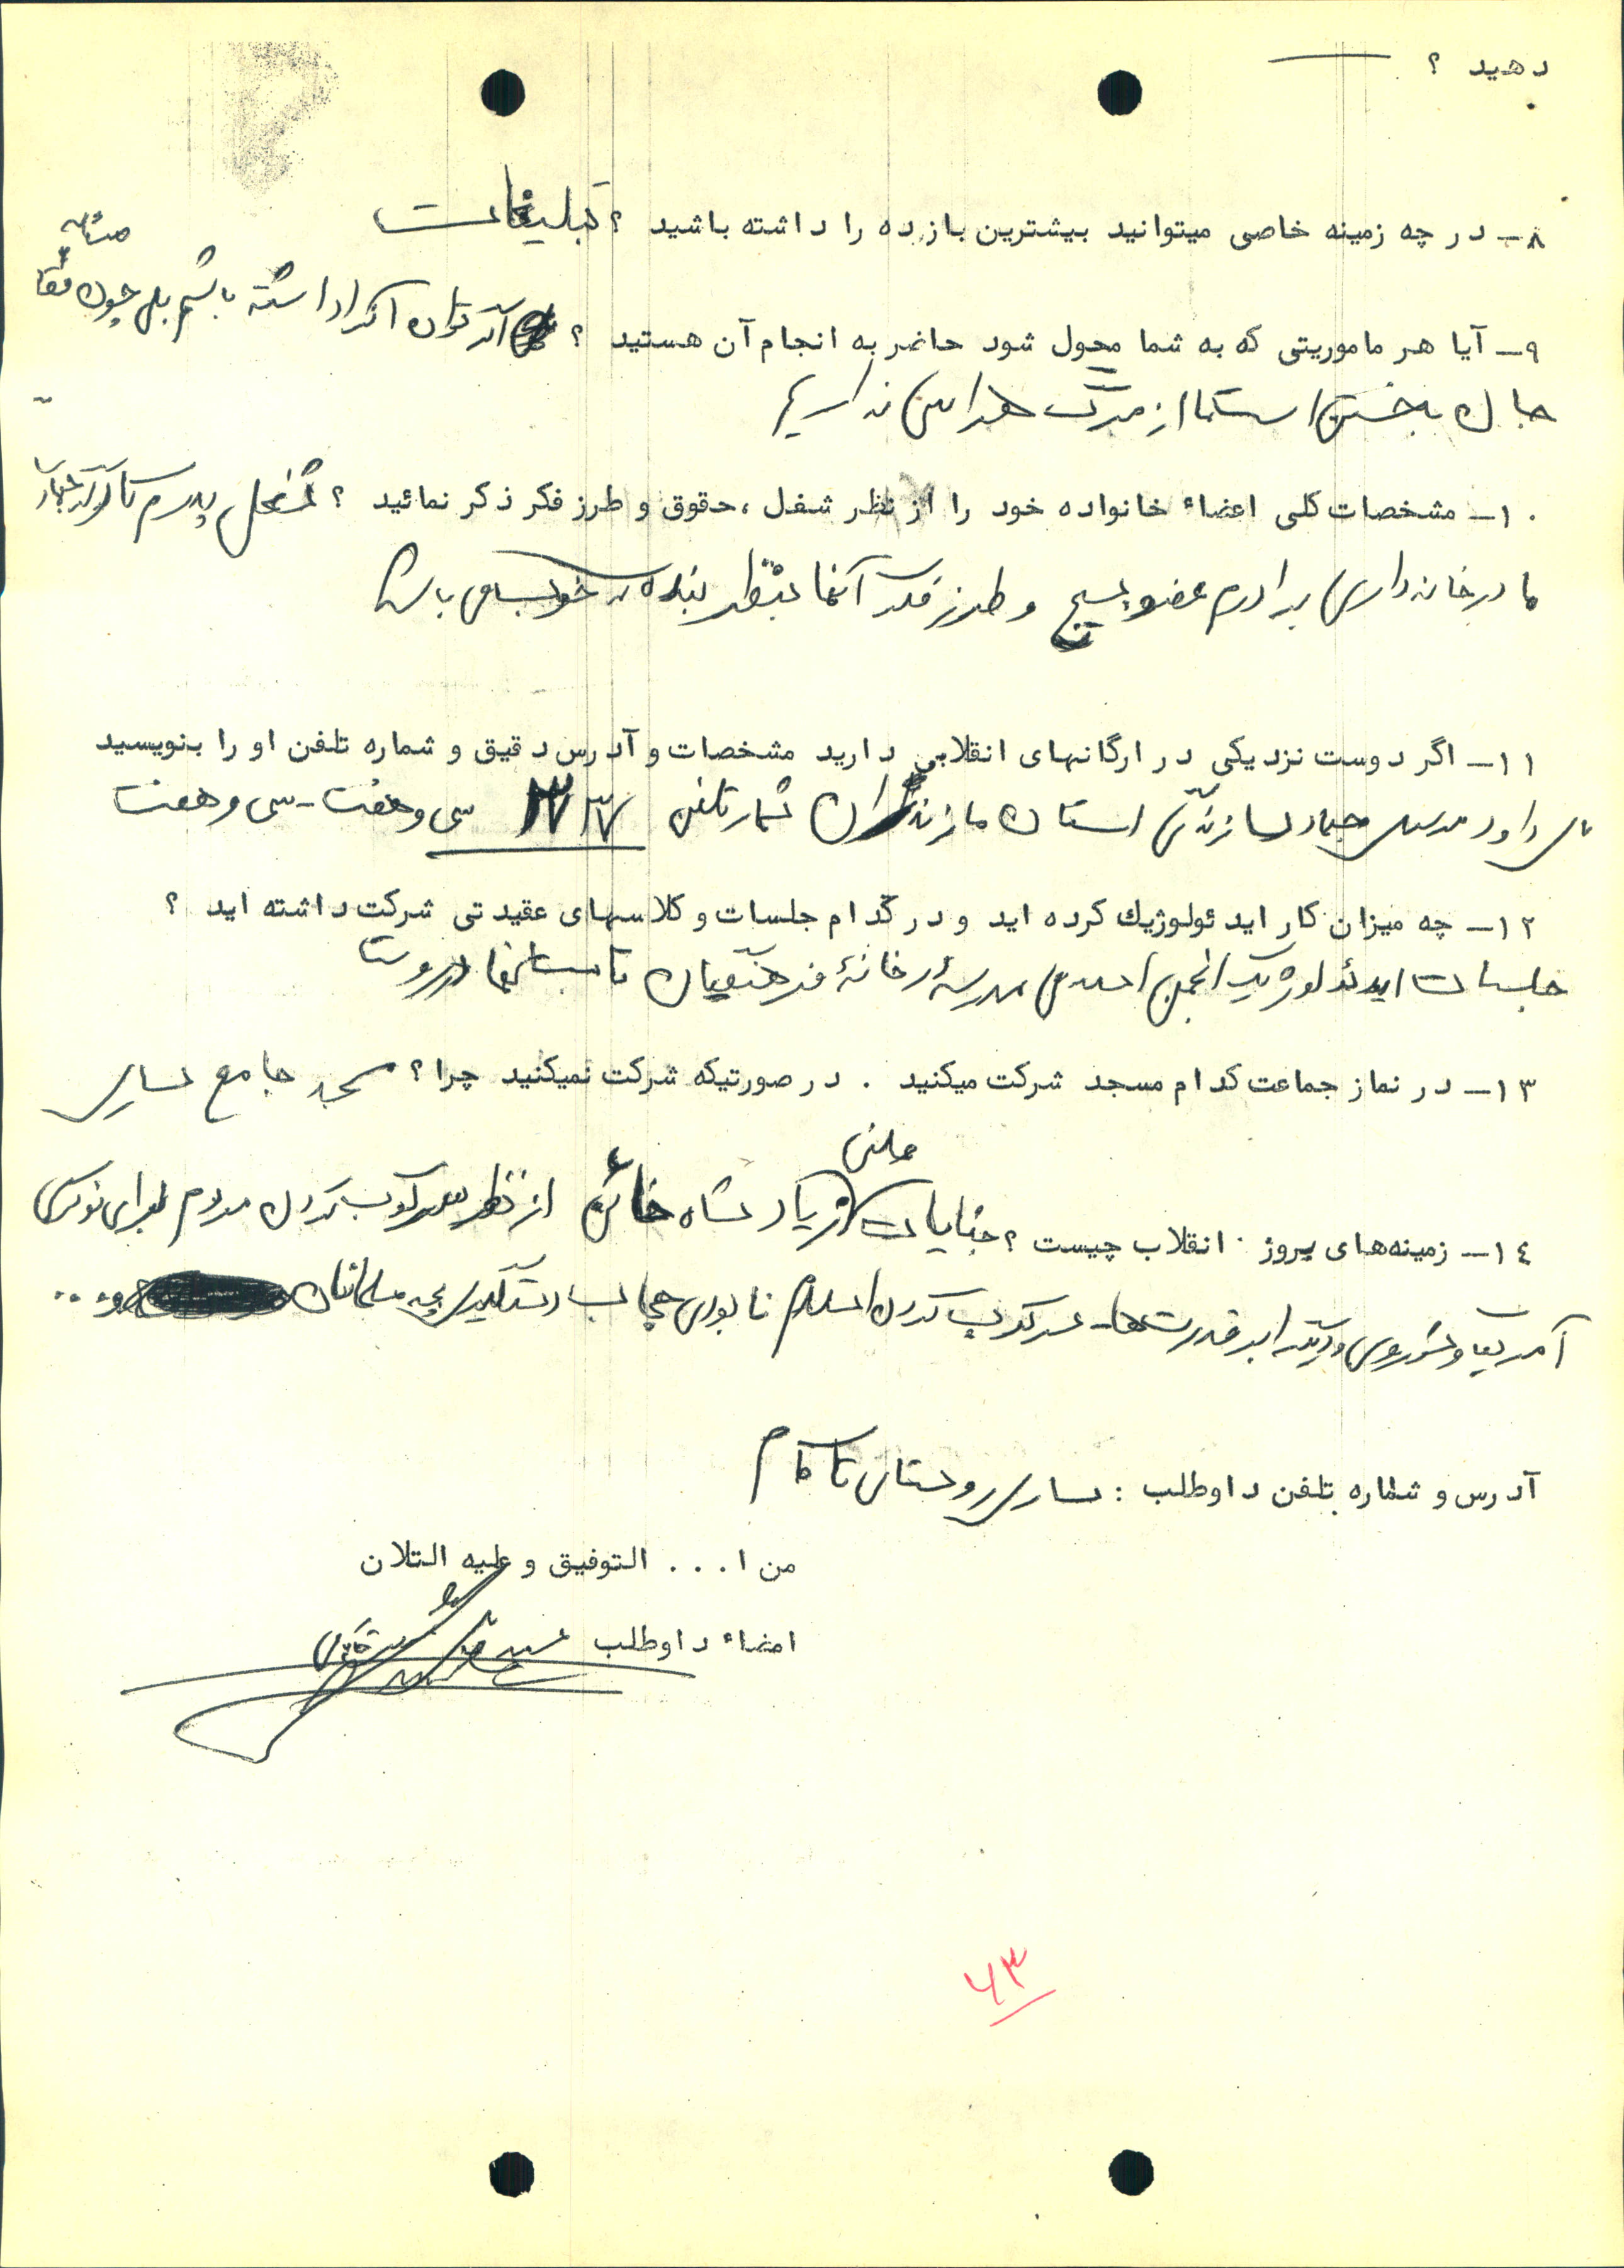 دهید ؟
۸ــ در چه زمینه خاصی میتوانید بیشترین بازده را داشته باشید ؟ تبلیغات
۹ــ آیا هر ماموریتی که به شما محول شود حاضر به انجام آن هستید ؟ اگر توان آنرا داشته باشم بلی چون فقط مسئله
جان بخشیدن است ما از مرگ هراسی نداریم
۱۰ــ مشخصات کلی اعضاء خانواده خود را از نظر شغل ، حقوق و طرز فکر ذکر نمائید ؟ شغل پدرم کارگر
مادر خانه داری برادرم عضو بسیج و طرز فکر آنها بنظر بنده خوب می باشد
۱۱ــ اگر دوست نزدیکی در ارگانهای انقلابی دارید مشخصات و آدرس دقیق و شماره تلفن او را بنویسید
داود جهاد سازندگی استان مازندران شمار تلفن ۳۷۳۷ سی و هفت - سی و هفت
۱۲ــ چه میزان کار ایدئولوژیك کرده اید و در کدام جلسات و کلاسهای عقیدتی شرکت داشته اید ؟
جلسات ایدئولوژیک انجمن اسلامی مدرسه خانهٔ فرهنگیان تابستانها در روستا
۱۳ــ در نماز جماعت کدام مسجد شرکت میکنید . در صورتیکه شرکت نمیکنید چرا ؟ مسجد جامع ساری
۱۴ــ زمینه‌های بروز انقلاب چیست ؟ جنایات زیاد شاه خائن از نظر سرکوب کردن مردم برای نوکری
آمریکا و شوروی و دیگر ابرقدرتها - سرکوب کردن اسلام نابودی حجاب دستگیری بچه مسلمانان و ...
آدرس و شماره تلفن داوطلب : ساری روستای
من ا... التوفیق و علیه التلان
امضاء داوطلب سید
۶۳